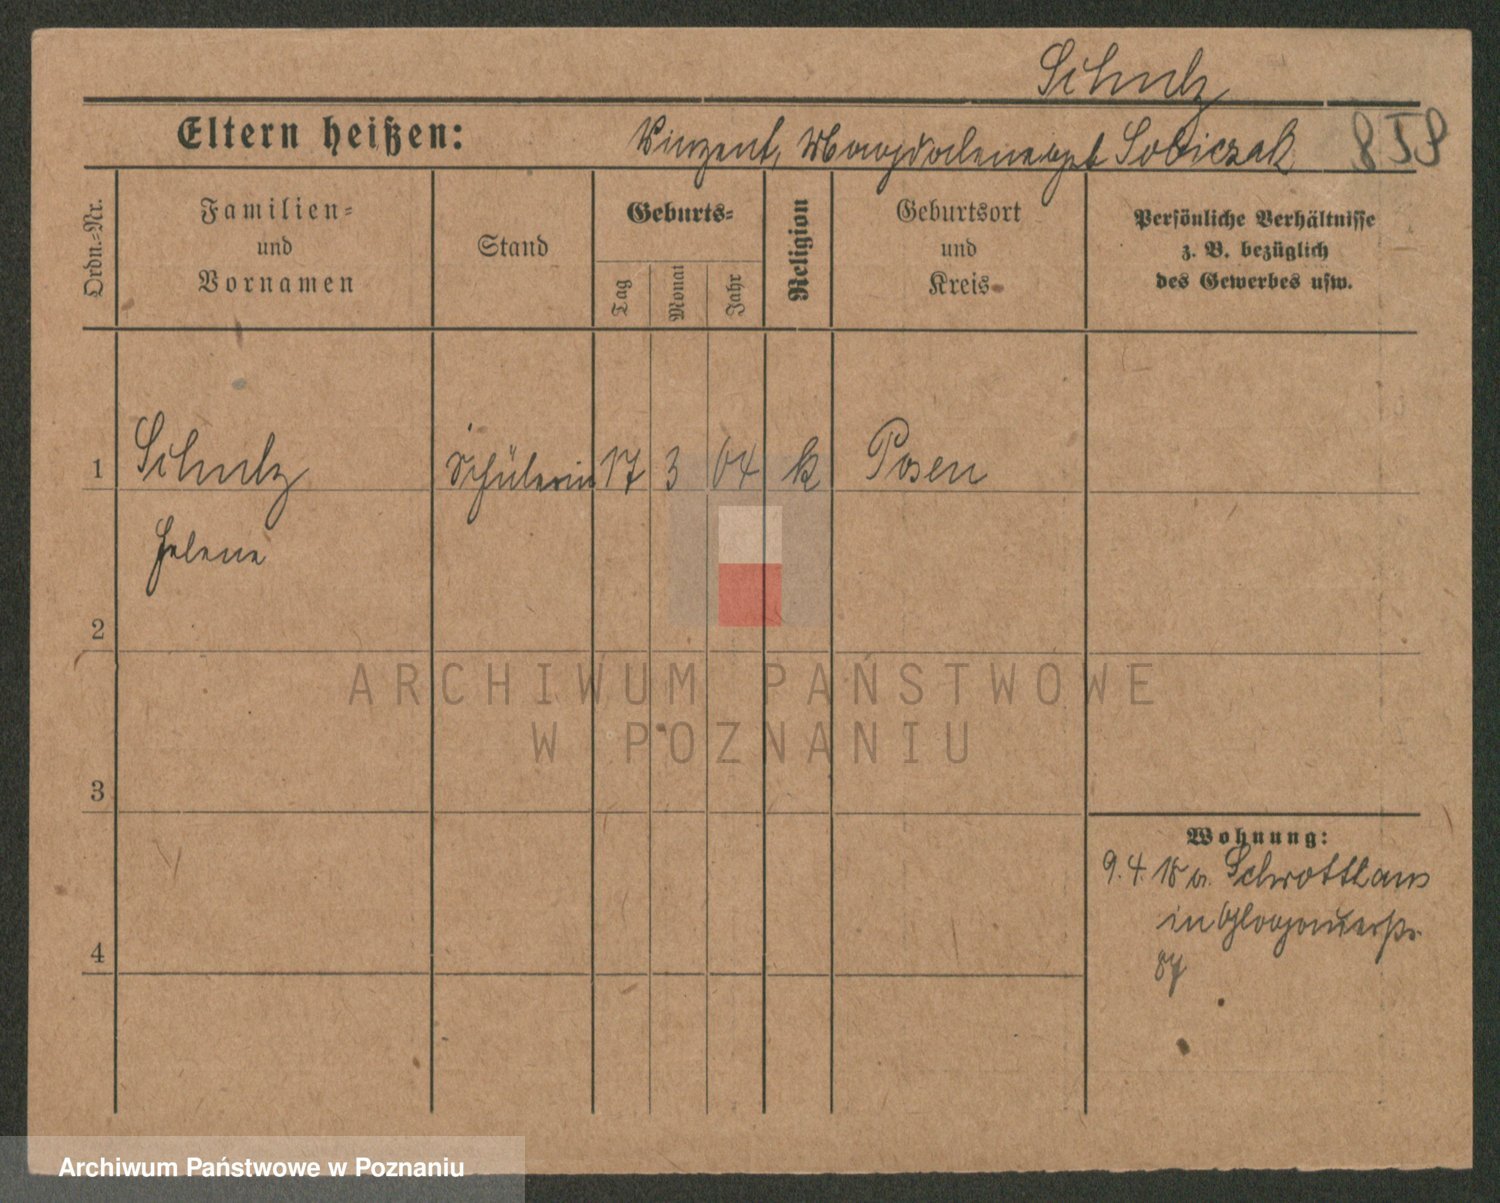 Schulz
Eltern heißen: Vinzent, Magdalene geb Sobiczak
Ordn.-Nr.
Familien-
und
Vornamen
Stand
Geburts-
Tag
Monat
Jahr
Religion
Geburtsort
und
Kreis
Persönliche Verhältnisse
z. B. bezüglich
des Gewerbes usw.
1 Schulz Schülerin 17 3 04 k Posen
Helene
2
3
4
Wohnung:
9.4.18 v. Schrotthaus
in Glogauerstr.
87
ARCHIWUM PAŃSTWOWE
W POZNANIU
Archiwum Państwowe w Poznaniu